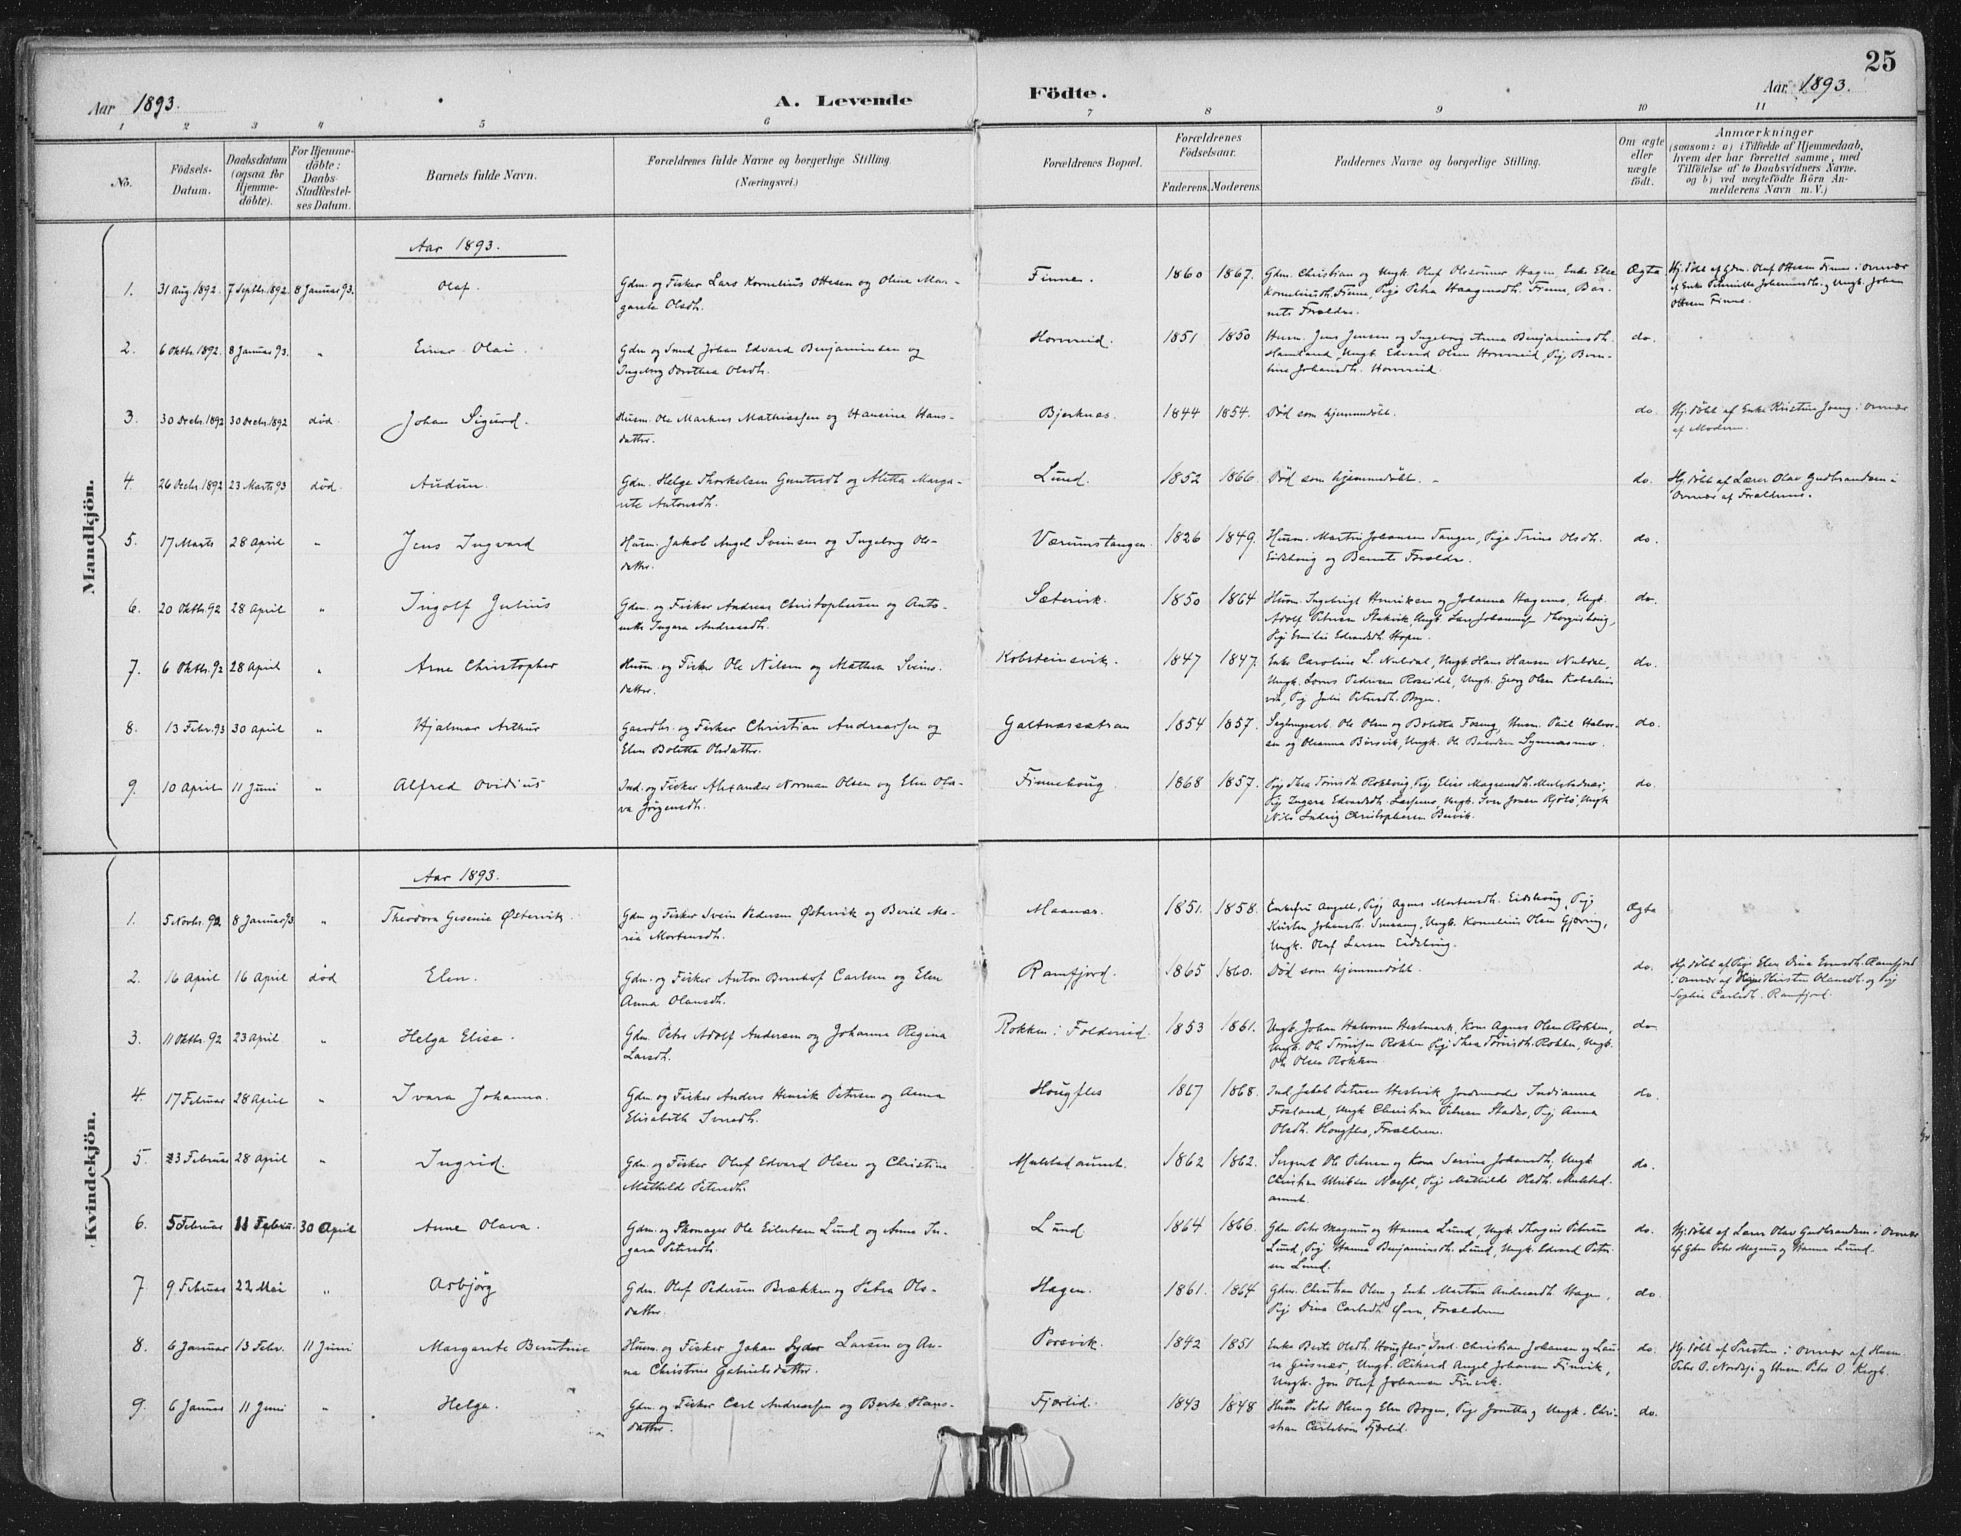 25
Aar 1893.
A. Levende Födte.
Aar 1893.
1 2 3 4 5 6 7 8 9 10 11
No.
Födsels-Datum.
Daabsdatum (ogsaa for Hjemme-döbte).
For Hjemme-döbte: Daabs-Stadfæstel-ses Datum.
Barnets fulde Navn.
Forældrenes fulde Navne og borgerlige Stilling. (Næringsvei.)
Forældrenes Bopæl.
Forældrenes Födselsaar.
Faderens. Moderens.
Faddernes Navne og borgerlige Stilling.
Om ægte eller uægte födt.
Anmærkninger
(saasom: a) i Tilfælde af Hjemmedaab,
hvem der har forrettet samme, med
Tilföielse af to Daabsvidners Navne.
og b) ved uægtefödte Börn An-
melderens Navn m. V.)
Mandkjön.
Aar 1893.
1. 31 Aug. 1892. 7 Septbr. 1892. 8 Januar 93. Olaf. Gdm. og Fisker Lars Kornelius Ottesen og Oline Mar-
garete Olsdt. Finne. 1860 1867. Gdm. Christian og Ungk. Oluf Olssønner Hagen, Enke Else
Korneliusdt. Finne, Pige Petra Haagensdt. Finne, Bar-
nets Forældre. Ægte Hj. døbt af Gdm. Olaf Ottesen Finne i Overvær
af Enke Pernilla Johannesdt. og Ungk. Johan
Ottesen Finne
2. 6 Oktbr. 1892. 8 Januar 93. " Einar Olai. Gdm og Smed Johan Edvard Benjaminsen og
Ingebrg Dorothea Olsdt. Horneid. 1851 1850 Husm. Jens Jensen og Ingebrg Anna Benjaminsdt.
Hamland, Ungk. Edvard Olsen Horneid, Pig. Bern-
tine Johansdt. Horneid. do.
3. 30 Decbr. 1892 30 Decbr. 1892 død. Johan Sigurd. Husm. Ole Markus Mathiassen og Hansine Hans-
datter. Bjerknes. 1844 1854. Død som hjemmedøbt. do. Hj. døbt af Enke Kristine i Overvær
af Moderen.
4. 26 Decbr. 1892 23 Marts 93 død. Audun. Gdm. Helge Thorkelsen og Aletta Marga-
rete Antonsdt. Lund. 1852 1866. Død som hjemmedøbt. do. Hj. døbt af Lærer Olav Gudbrandsen i
Overvær af Forældrene.
5. 17 Marts 28 April " Jens Ingvard Husm. Jakob Angel Svensen og Ingebrg Ols-
datter. Værumstangen. 1826 1849. Husm. Martin Johansen Tangen, Pige Trine Olsdt.
Eidshoug og Barnets Forældre. do.
6. 20 Oktbr. 92 28 April " Ingolf Julius Gdm. og Fisker Andreas Christophersen og Anto-
nette Ingera Andreasdt. Sætervik. 1850 1864 Husm. Ingebrigt Henriksen og Johanna Hagenes, Ungk.
Adolf Petersen, Ungk. Lars Johannes.
Pige Emilie Edvardsdt. Hopen. do.
7. 6 Oktbr. 92 28 April " Arne Christopher Husm. og Fisker Ole Nilsen og Mathea Svens-
datter. Kobsteinsvik. 1847 1847. Enke Caroline L. Nuldal, Ungk. Hans Hansen Nuldal,
Ungk. Lorns Pedersen, Ungk. Georg Olsen
vik, Pig. Julie Petersdt. Bogen. do.
8. 13 Febr. 93 30 April " Hjalmar Arthur Gaardbr. og Fisker Christian Andreassen og
Elen Bolette Olsdatter. Galtnessætran 1854 1857. Ole Olsen og Boletta, Husm. Paul Halvor-
sen og Oleanna Børsvik, Ungk. Ole do.
9. 10 April 11 Juni " Alfred Ovidius Ind. og Fisker Alexander Norman Olsen og Elen Ola-
va Jørgensdt. Finnehoug 1868 1857. Pige Thea Tønisdt., Pig. Elise Magnusdt.
Pig. Ingera Edvardsdt., Ungk. Iver Jonsen, Ungk
Nils Ludvig Christophersen. do.
Kvindekjön.
Aar 1893.
1. 5 Novbr. 92 8 Januar 93. " Theodora Gesenie Østervik. Gdm og Fisker Svein Pedersen Østervik og Berit Ma-
rie Mortensdt. Maanes. 1851. 1858. Enkefru Angell, Pig. Agnes Mortensdt. Eidshoug, Pig.
Kirsten Johansdt., Ungk. Kornelius Olsen Gjæring,
Ungk. Oluf Larsen Eidshoug. Ægte
2. 16 April 16 April død Elen. Gdm. og Fisker Anton Bernhof Carlsen og Elen
Anna Olausdt. Ramfjord. 1865 1860. Død som hjemmedøbt. do. Hj. døbt af Pige Elen Dina Ramfjord
i Overvær af Kirsten Olausdt. og Pig.
Sophie Carlsdt. Ramfjord.
3. 11 Oktbr. 92 23 April " Helga Elise. Gdm. Peter Adolf Andersen og Johanna Regina
Larsdt. Rokken i Foldereid. 1853 1861. Ungk. Johan Halvorsen Hestmark, Kone Agnes Olsen Rokken,
Ungk. Ole Tønisen Rokken, Pig. Thea Tønisdt. Rokken, Ungk.
Ole Olsen Rokken do.
4. 17 Februar 28 April " Ivara Johanna. Gdm. og Fisker Anders Henrik Petersen og Anna
Elisabeth Hougfles 1867 1868. Ind. Jakob Petersen, Jordemoder Indianna
Fosland, Ungk. Christian Petersen, Pig. Anna
Olsdt. Hougfles, Forældrene. do.
5. 23 Februar 28 April " Ingrid. Gdm. og Fisker Oluf Edvard Olsen og Christine
Mathilde Petersdt. Mulstadaunet. 1862 1862. Sergeant Ole Petersen og Kone Serine Johansdt., Ungk
Christian, Pig. Mathilde Olsdt. Mulstad-
aunet. do.
6. 5 Februar 11 Februar. 30 April Anne Olava. Gdm. og Skomager Ole Eilertsen Lund og Anne In-
gera Petersdt. Lund 1864 1866. Gdm. Peter Magnus og Hanna Lund, Ungk. Thorgeir Petersen
Lund, Pig. Hanna Benjaminsdt. Lund, Ungk. Edvard Peter-
sen Lund. do. Hj. døbt af Lærer Olav Gudbrandsen i Overvær
af Gdm. Peter Magnus og Hanna Lund.
7 9 Februar 22 Mai " Asbjørg Gdm. Oluf Pedersen Brækken og Petra Ols-
datter. Hagen. 1861. 1864 Gdm. Christian Olsen og Enk. Martine Andreasdt. Hagen,
Pig. Dina Carlsdt., Forældrene do.
8. 6 Januar 13 Febr. 11 Juni Margarete Berntine Husm. og Fisker Johan Larsen og An-
na Christine Gabrielsdatter. Porsvik. 1842 1851 Enke Berte Olsdt. Hougfles, Ind. Christian Johansen og Lau-
ra, Ungk. Rikard Angel Johansen Finvik,
Ungk. Jon Oluf Johansen Finvik. do. Hj. døbt af Presten i Overvær af Husm.
Peter O. og Husm. Peter O. Krogh.
9. 6 Januar 11 Juni " Helga. Gdm. og Fisker Carl Andreassen og Berte Hans-
datter. Fjærlid. 1843 1848 Husm Peter Olsen og Elen Bogen, Pige Jonetta og Ungk. Chri-
stian Carlsbørn Fjærlid. do.